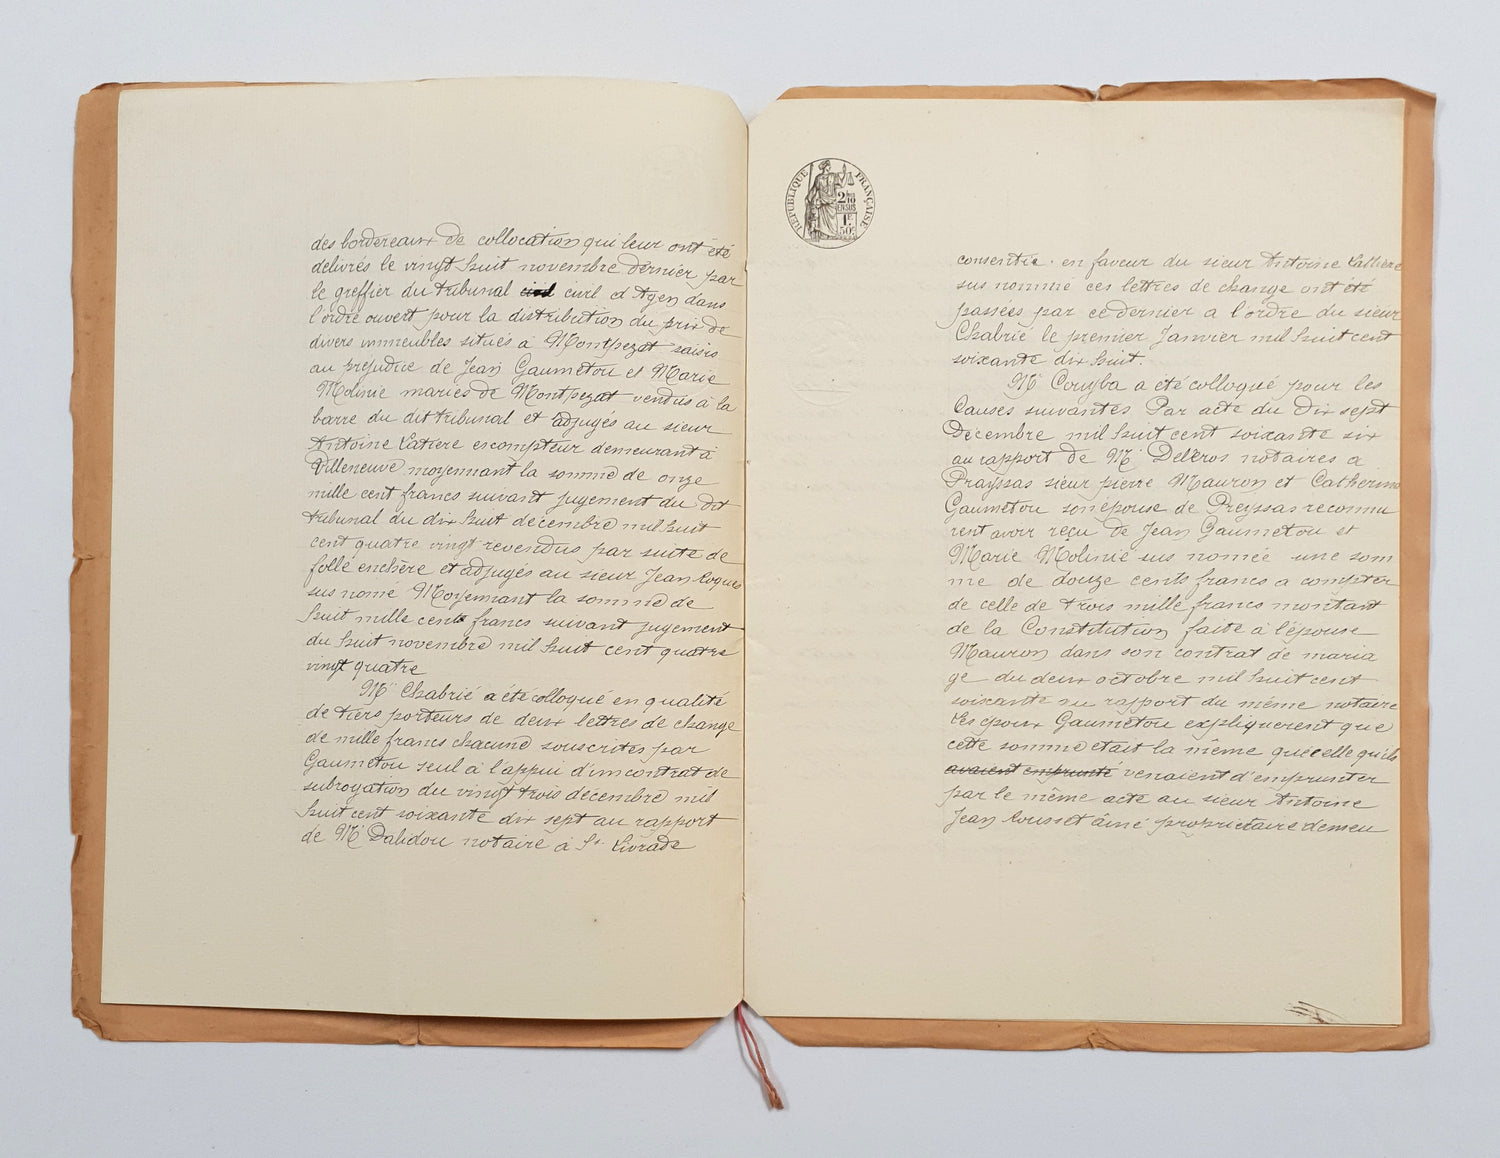 des bordereaux de collocation qui leur ont été
délivrés le vingt huit novembre dernier par
le greffier du tribunal civil civil d'Agen dans
l'ordre ouvert pour la distribution du prix de
divers immeubles situés à Montpezat saisis
au préjudice de Jean Gaumétou et Marie
Molinié mariés de Montpezat vendus à la
barre du dit tribunal et adjugés au sieur
Antoine Latière escompteur demeurant à
Villeneuve moyennant la somme de onze
mille cent francs suivant jugement du dit
tribunal du dix huit décembre mil huit
cent quatre vingt revendus par suite de
folle enchère et adjugés au sieur Jean Roques
sus nomé Moyennant la somme de
huit mille cents francs suivant jugement
du huit novembre mil huit cent quatre
vingt quatre
Mr Chabrié a été colloqué en qualité
de tiers porteurs de deux lettres de change
de mille francs chacune souscrites par
Gaumétou seul à l'appui d'un contrat de
subrogation du vingt trois décembre mil
huit cent soixante dix sept au rapport
de Me Dalidou notaire à St. Livrade
RÉPUBLIQUE FRANÇAISE
2/10 EN SUS
1F. 50C.
consentie. en faveur du sieur Antoine Lattière
sus nommé ces lettres de change ont été
passées par ce dernier a l'ordre du sieur
Chabrié le premier Janvier mil huit cent
soixante dix huit.
Mr Couyba a été colloqué pour les
Causes suivantes Par acte du Dix sept
Décembre mil huit cent soixante six
au rapport de Me Delbros notaires a
Prayssas sieur pierre Mauron et Catherine
Gaumétou son épouse de Preyssas reconnu
rent avoir reçu de Jean Gaumétou et
Marie Molinié sus nomée une som
me de douze cents francs a compter
de celle de trois mille francs montant
de la Constitution faite à l'épouse
Mauron dans son contrat de maria
ge du deux octobre mil huit cent
soixante au rapport du même notaire
Les époux Gaumétou expliquerent que
cette somme etait la même que celle qu'ils
avaient emprunté venaient d'emprunter
par le même acte au sieur Antoine
Jean Rousset ainé propriétaire demeu